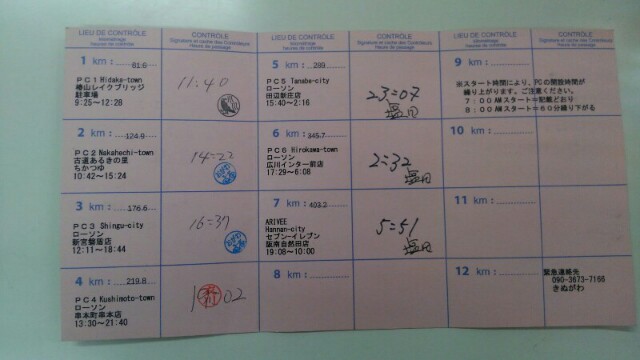 LIEU DE CONTRÔLE
kilométrage
heures de contrôle
CONTRÔLE
Signature et cachet des Contrôleurs
Heure de passage
LIEU DE CONTRÔLE
kilométrage
heures de contrôle
CONTRÔLE
Signature et cachet des Contrôleurs
Heure de passage
LIEU DE CONTRÔLE
kilométrage
heures de contrôle
CONTRÔLE
Signature et cachet des Contrôleurs
Heure de passage
1 km : 61.6
PC1 Hidaka-town
椿山レイクブリッジ
駐車場
9:25~12:28
11:40
2 km : 124.9
PC2 Nakahechi-town
古道あるきの里
ちかつゆ
10:42~15:24
14:22
3 km : 176.6
PC3 Shingu-city
ローソン
新宮磐盾店
12:11~18:44
16:37
4 km : 219.8
PC4 Kushimoto-town
ローソン
串本町串本店
13:30~21:40
02
5 km : 299
PC5 Tanabe-city
ローソン
田辺新庄店
15:40~2:16
23:07
塩田
6 km : 345.7
PC6 Hirokawa-town
ローソン
広川インター前店
17:29~6:08
2:32
塩田
7 km : 403.2
ARIVEE
Hannan-city
セブン-イレブン
阪南自然田店
19:08~10:00
5:51
塩田
8 km :
9 km :
※スタート時間により、PCの開設時間が
繰り上がります。ご注意ください。
7:00AMスタート=記載どおり
8:00AMスタート=60分繰り下がる
10 km :
11 km :
12 km :
緊急連絡先
090-3673-7166
きぬがわ